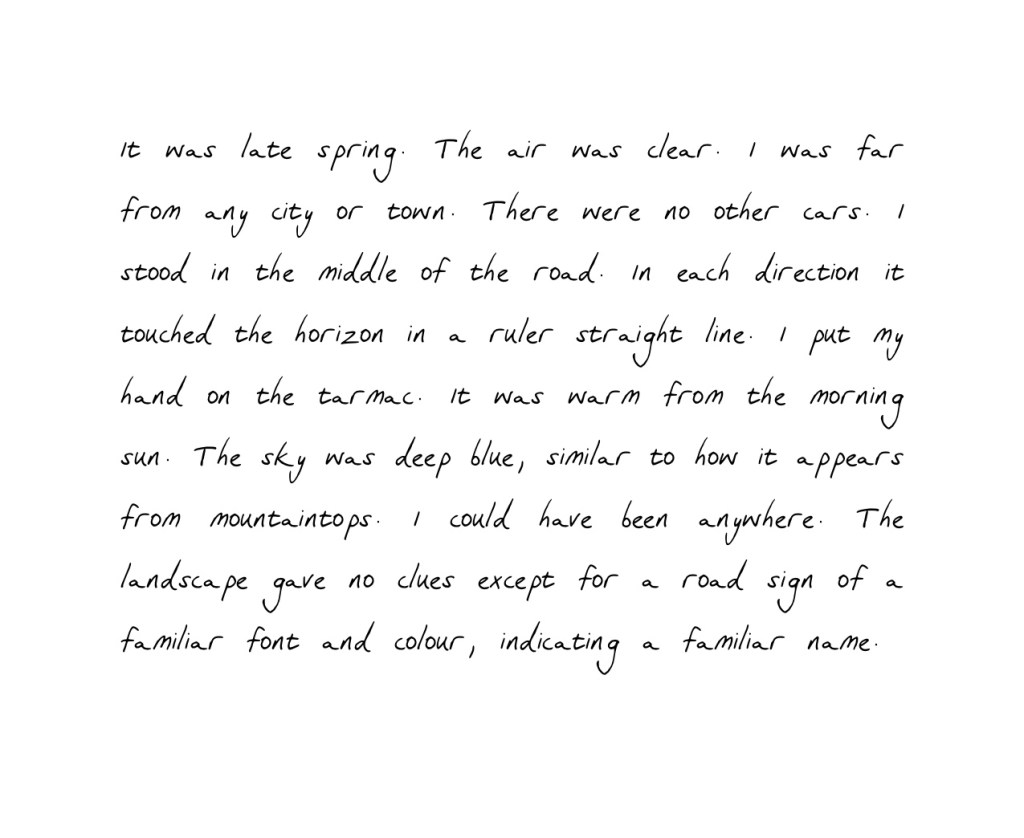 It was late spring. The air was clear. I was far
from any city or town. There were no other cars. I
stood in the middle of the road. In each direction it
touched the horizon in a ruler straight line. I put my
hand on the tarmac. It was warm from the morning
sun. The sky was deep blue, similar to how it appears
from mountaintops. I could have been anywhere. The
landscape gave no clues except for a road sign of a
familiar font and colour, indicating a familiar name.